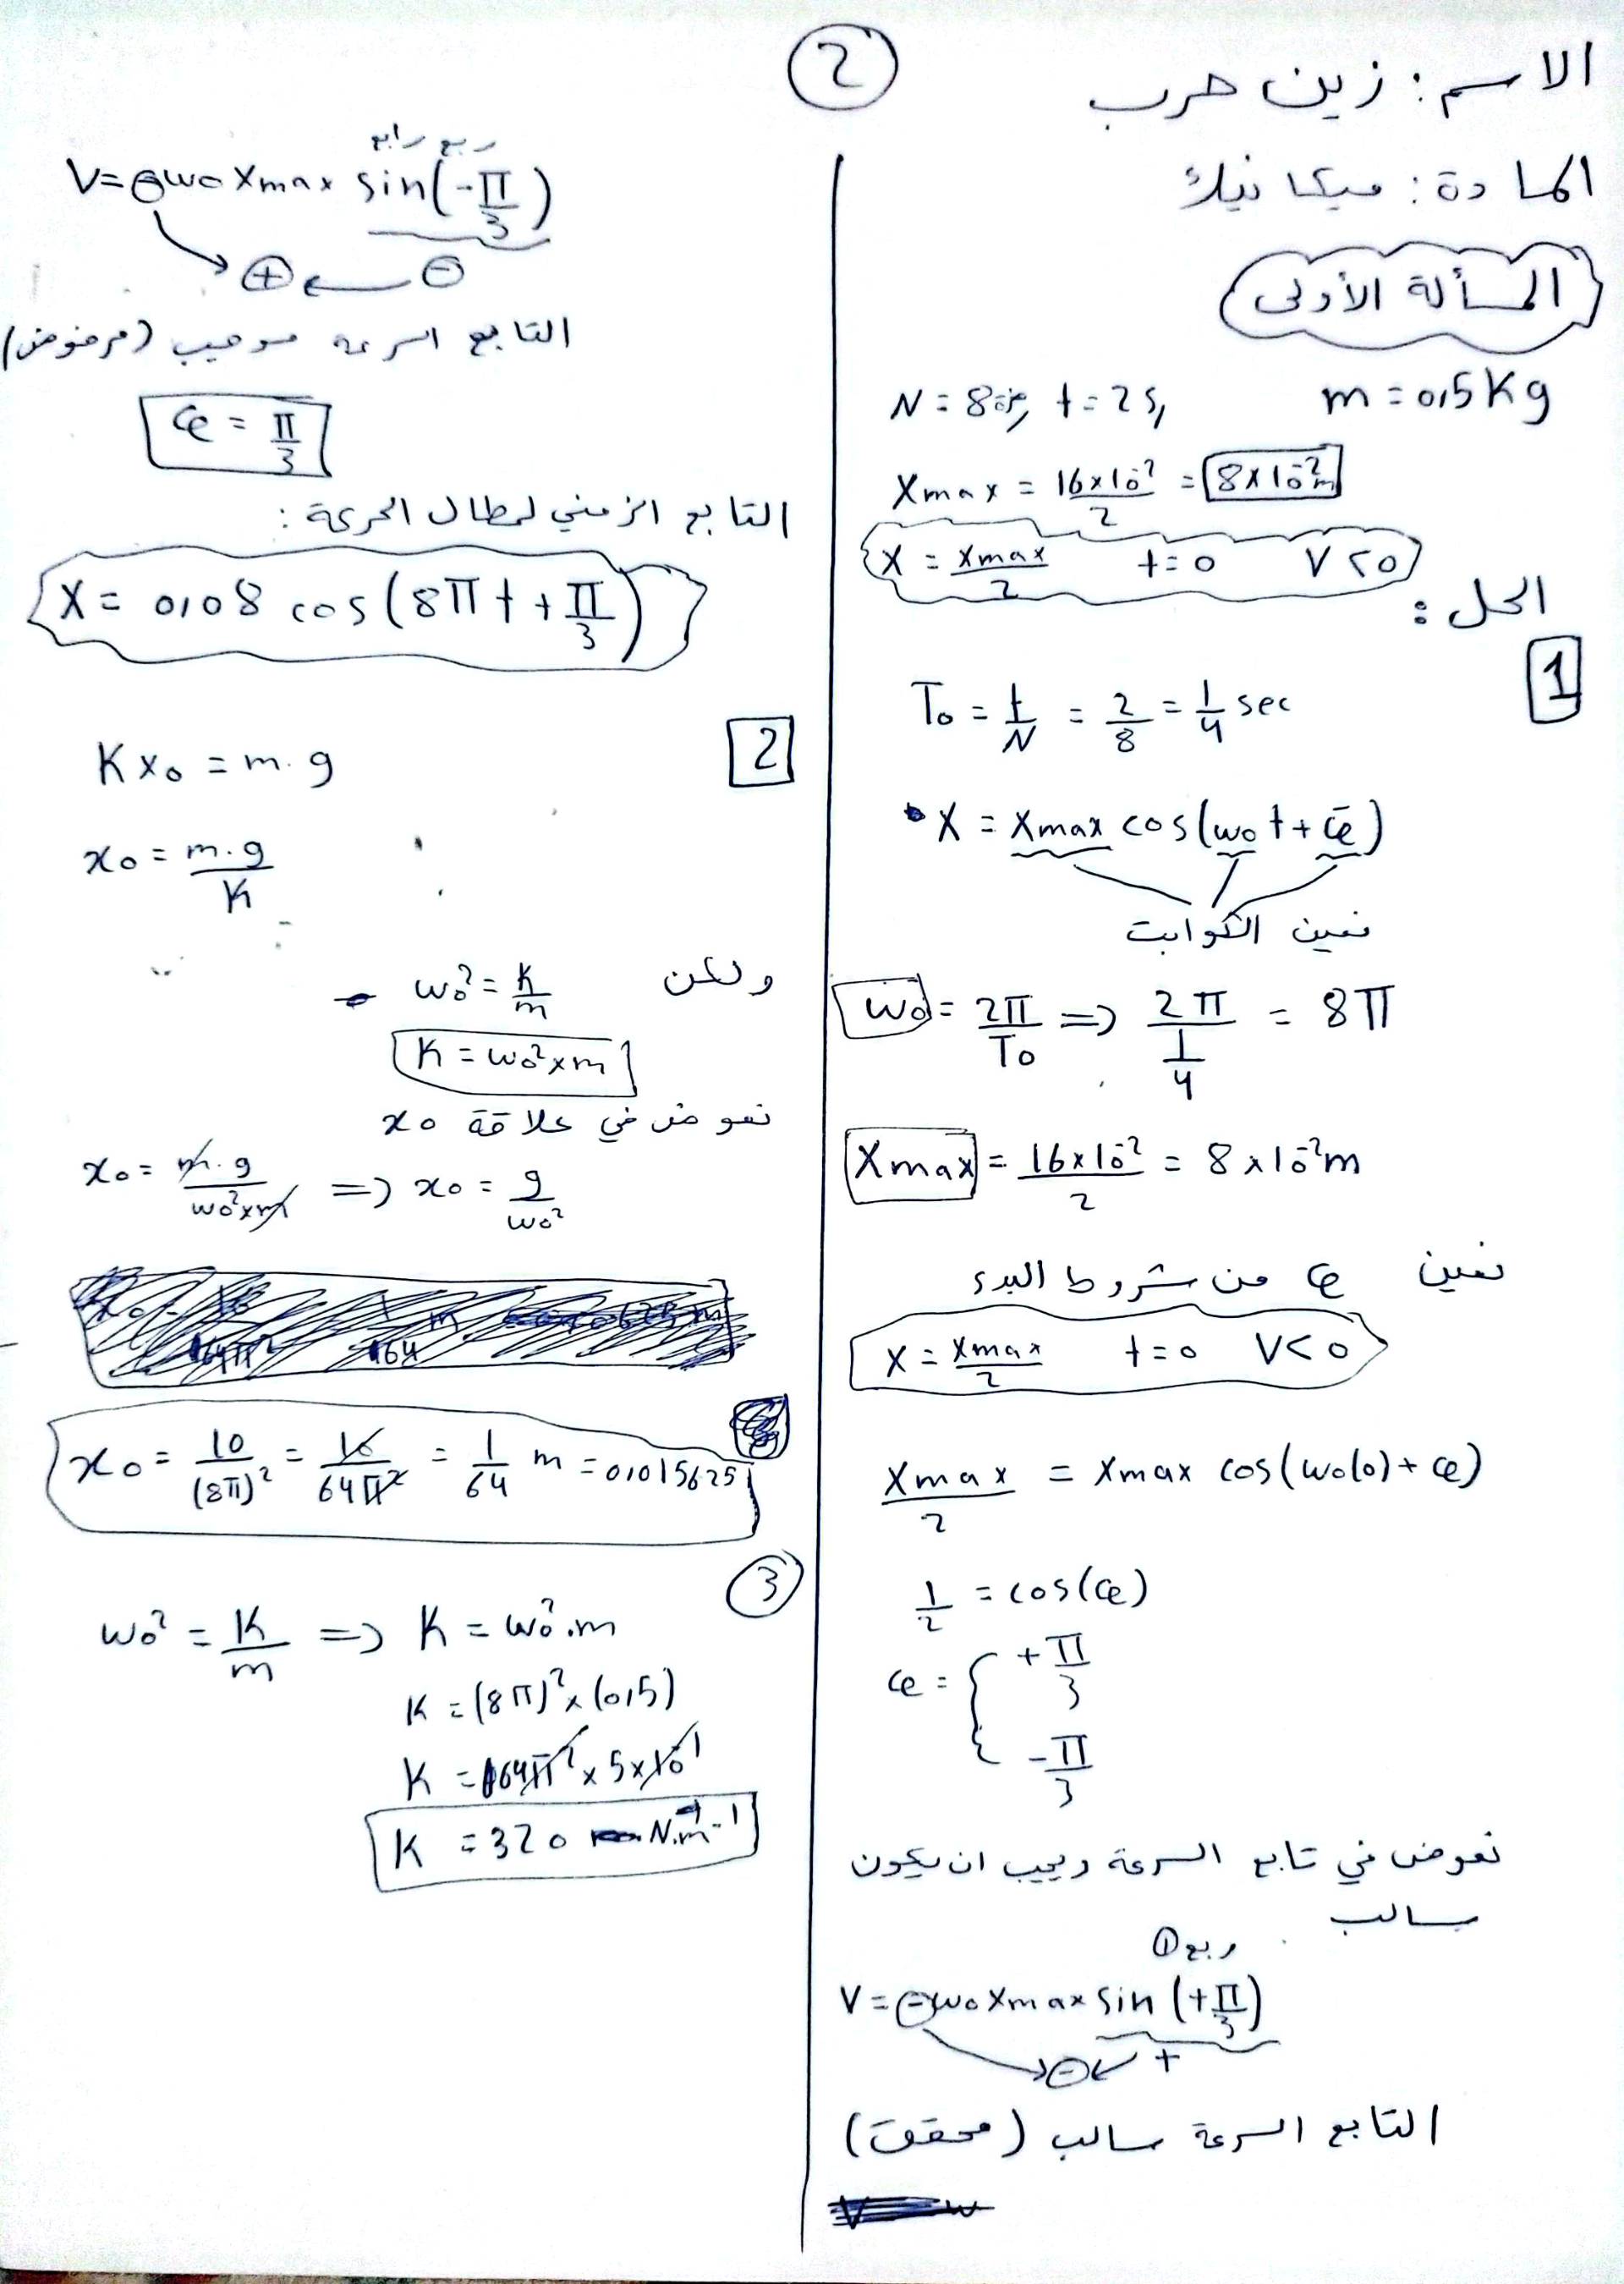 2
الاسم: زين حرب
المادة: ميكانيك
المسألة الأولى
m = 0,5 Kg
N = 8 هزة, t = 2 s,
Xmax = 16×10^-2 / 2 = 8×10^-2 m
X = Xmax / 2 t = 0 V < 0
الحل:
1
T0 = t / N = 2 / 8 = 1/4 sec
• X = Xmax cos(ω0 t + φ̄)
نعين الثوابت
ω0 = 2π / T0 => 2π / (1/4) = 8π
Xmax = 16×10^-2 / 2 = 8×10^-2 m
نعين φ من شروط البدء
X = Xmax / 2 t = 0 V < 0
Xmax / 2 = Xmax cos(ω0(0) + φ)
1/2 = cos(φ)
φ = { + π/3
- π/3
نعوض في تابع السرعة ويجب ان يكون
سالب
ربع 1
V = - ω0 Xmax sin(+ π/3)
- ← +
التابع السرعة سالب (محقق)
ربع رابع
V = - ω0 Xmax sin(- π/3)
+ ← -
التابع السرعة موجب (مرفوض)
φ = π/3
التابع الزمني لمطال الحركة:
X = 0,08 cos(8πt + π/3)
2
K x0 = m . g
x0 = m . g / K
ولكن ω0² = K / m
K = ω0² × m
نعوض في علاقة x0
x0 = m . g / ω0² × m => x0 = g / ω0²
x0 = 10 / (8π)² = 10 / 64π² = 1/64 m = 0,015625
3
ω0² = K / m => K = ω0² . m
K = (8π)² × (0,5)
K = 64π² × 5×10^-1
K = 320 N.m^-1